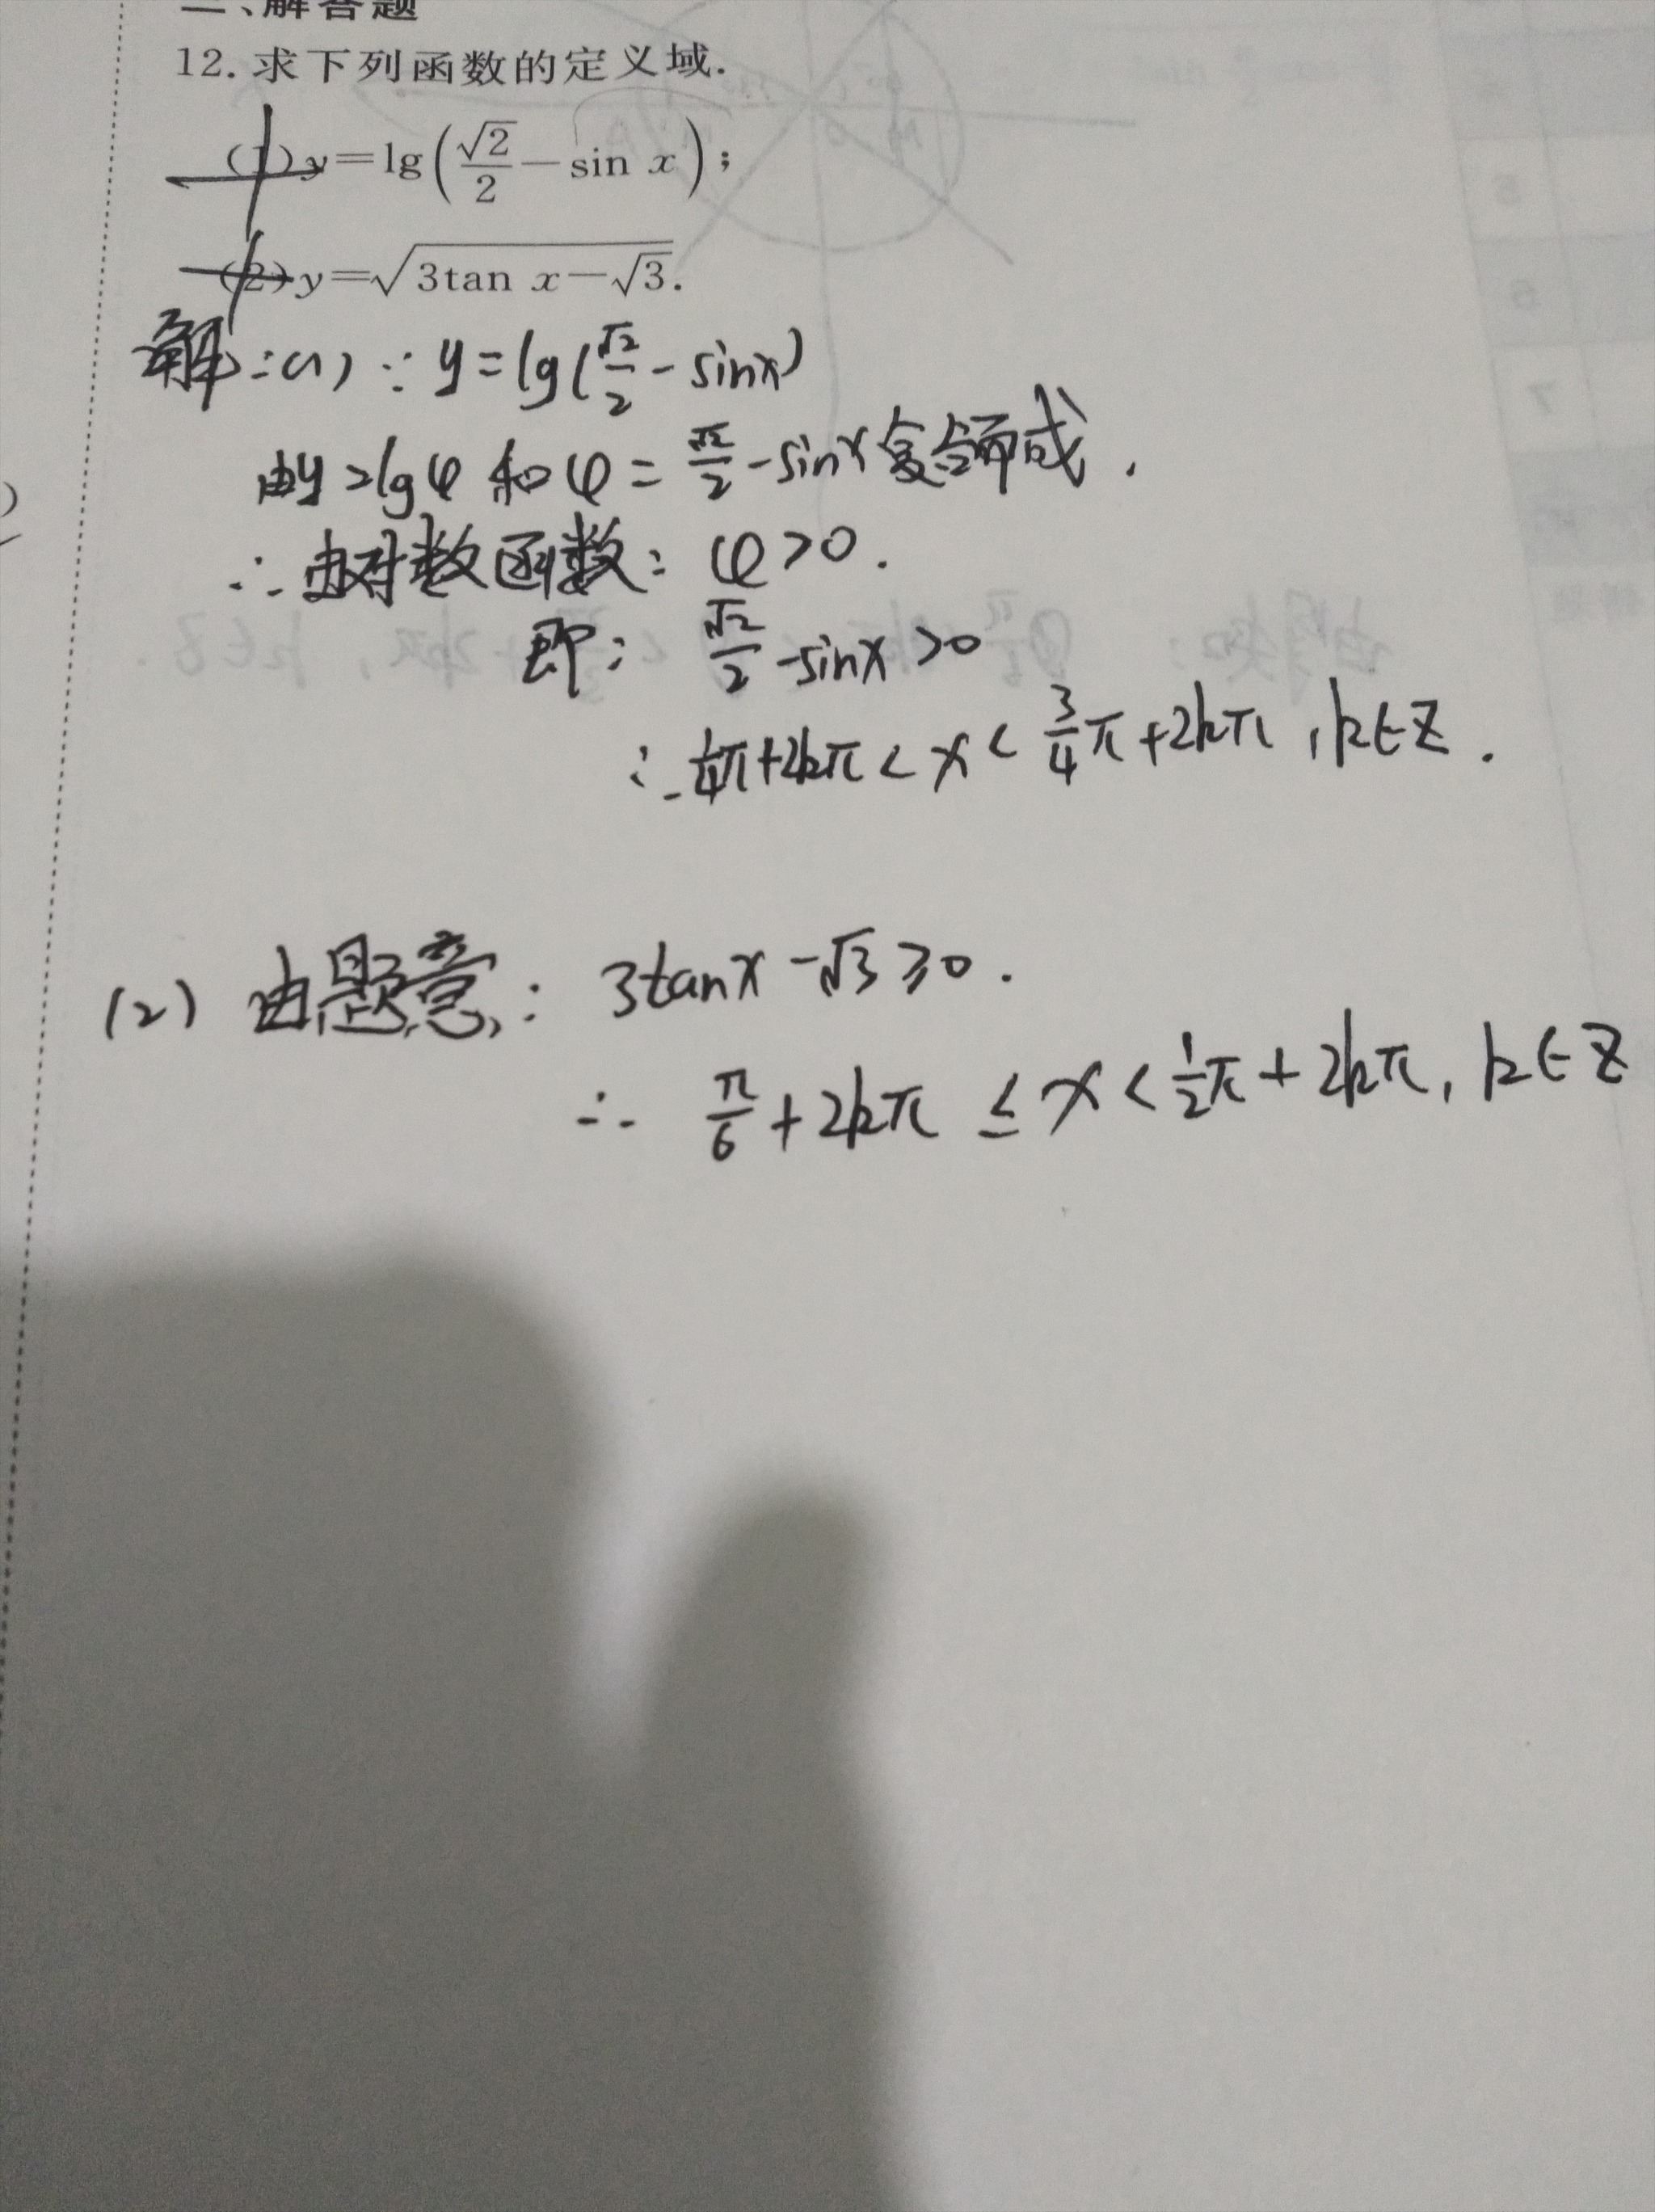 二、解答题
12. 求下列函数的定义域.
(1) y=lg(√2/2−sin x);
(2) y=√(3tan x−√3).
解:(1) ∵ y=lg(√2/2−sinx)
由y=lgφ和φ=√2/2−sinx复合而成.
∴由对数函数: φ>0.
即: √2/2−sinx>0
∴ 1/4π+2kπ<x<3/4π+2kπ,k∈Z.
(2) 由题意: 3tanx−√3≥0.
∴ π/6+2kπ≤x<1/2π+2kπ, k∈Z